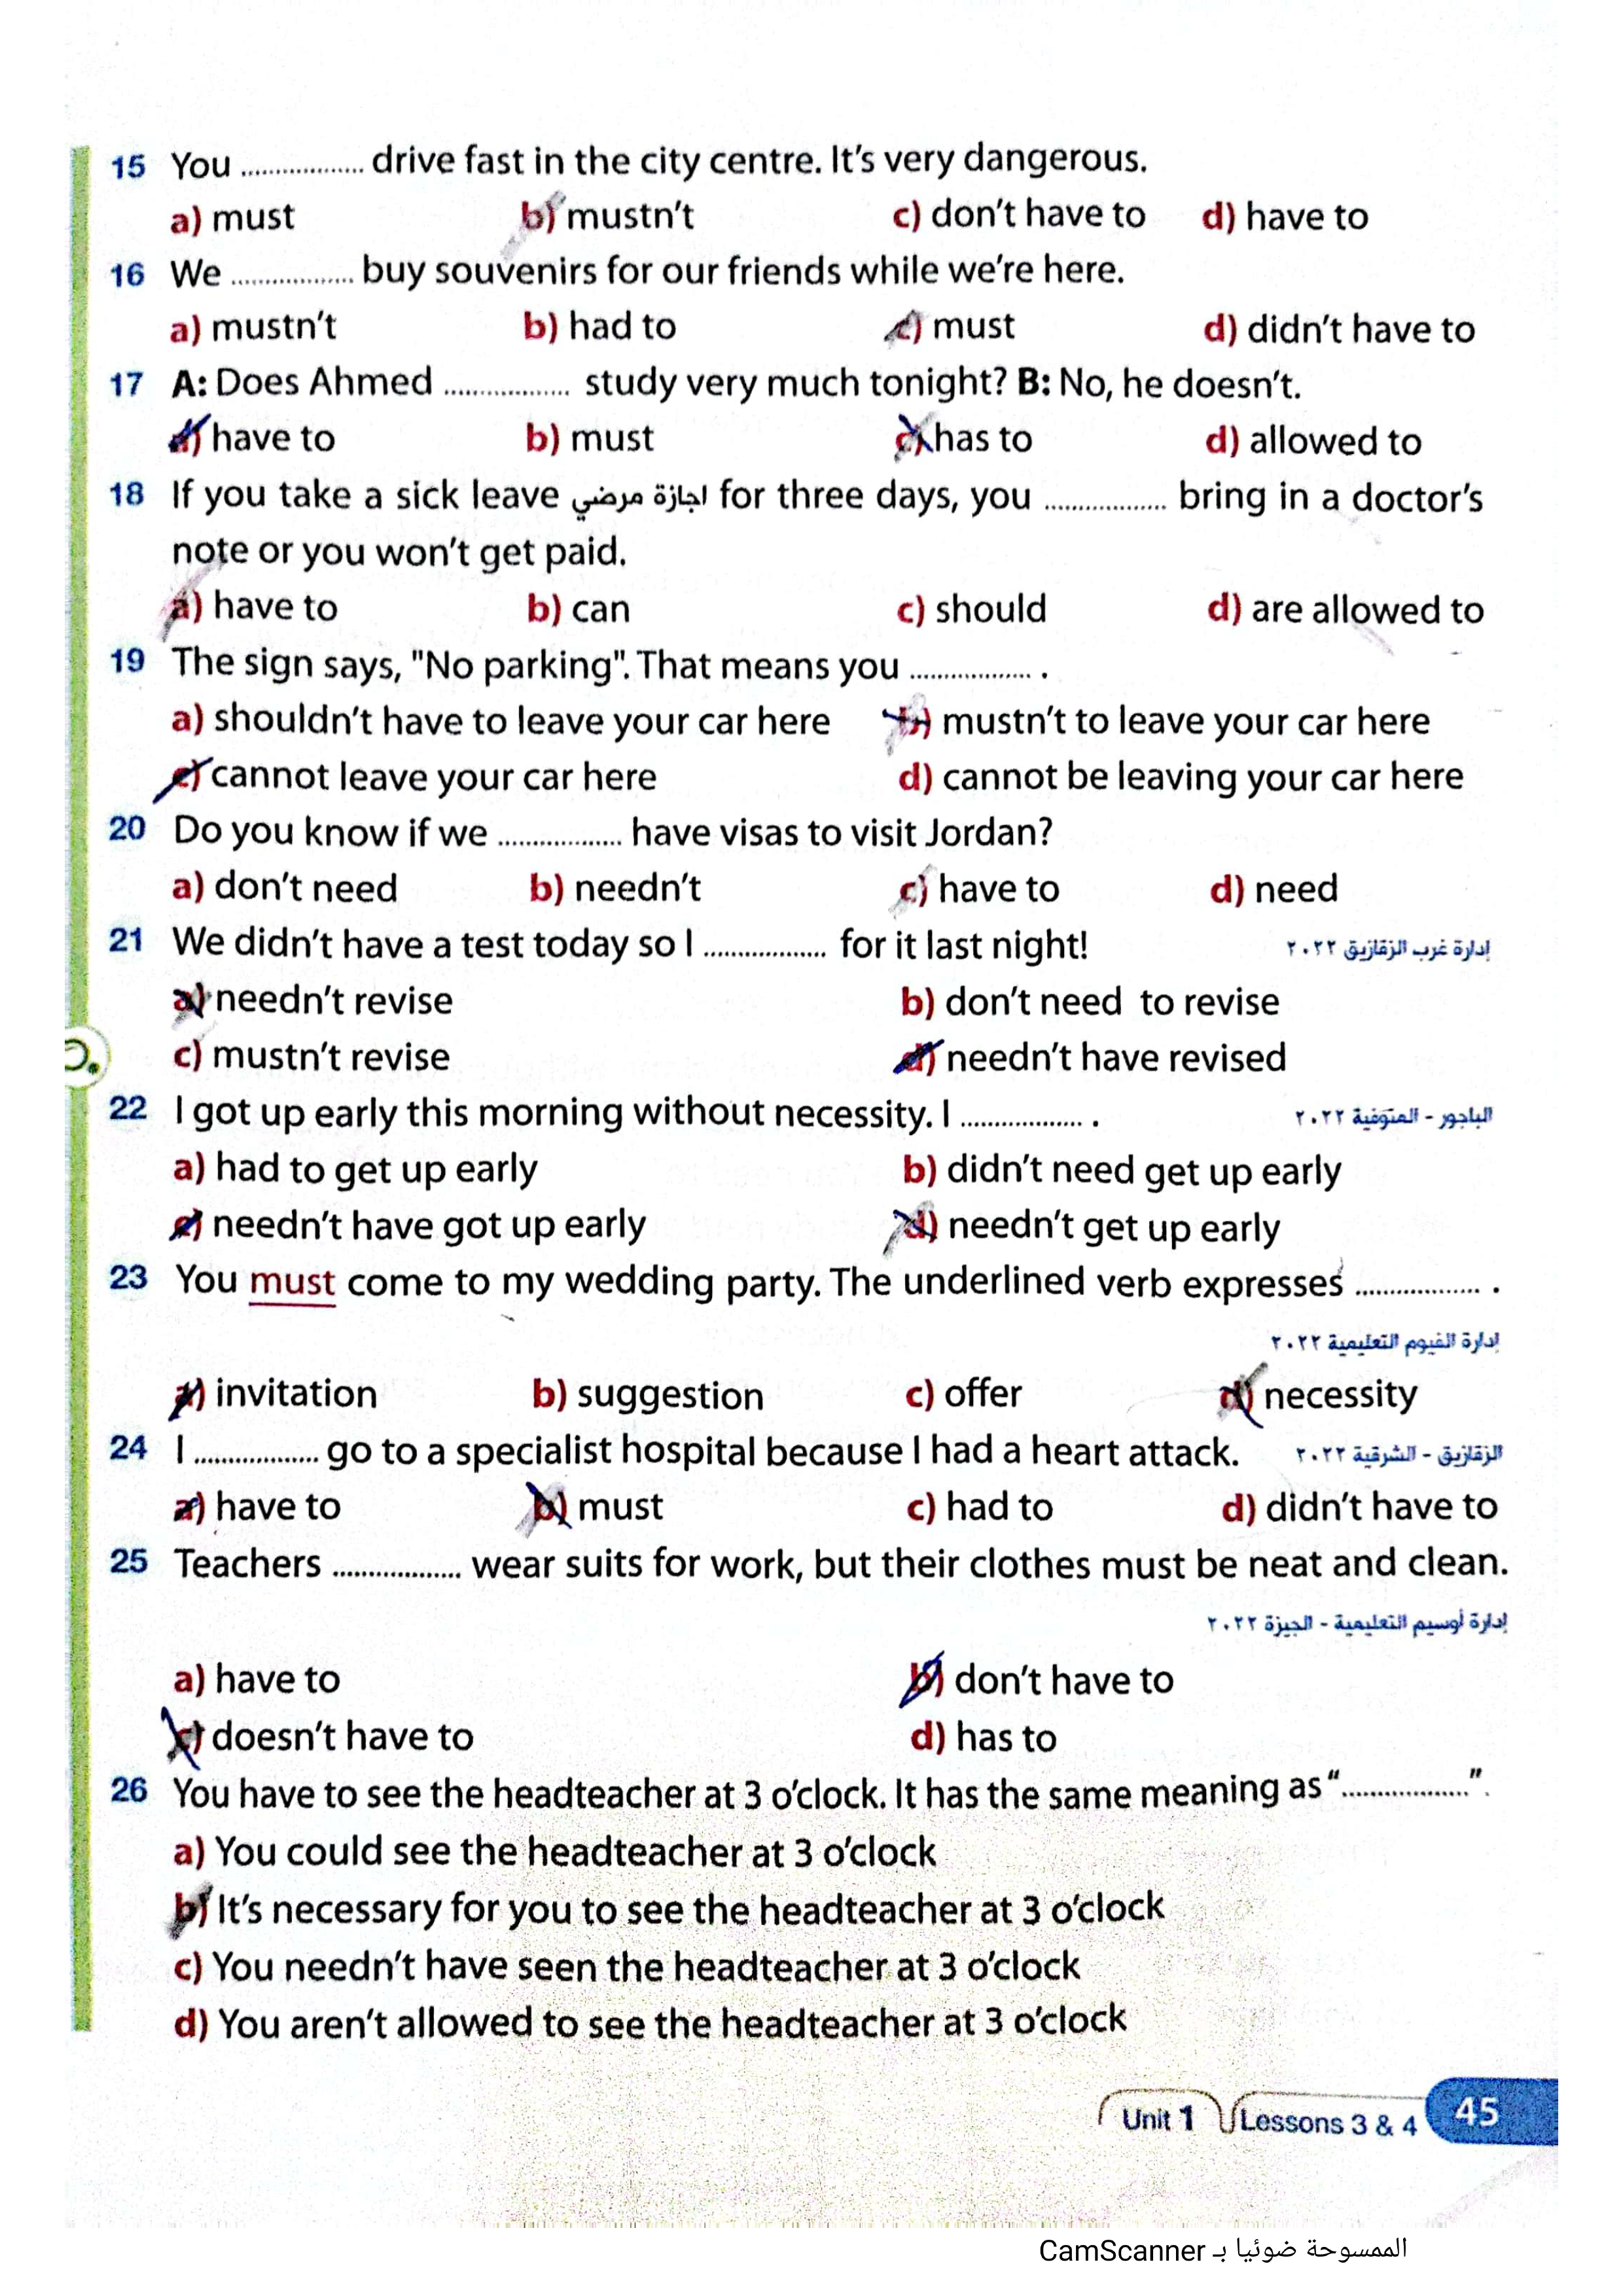 15 You .................. drive fast in the city centre. It's very dangerous.
a) must b) mustn't c) don't have to d) have to
16 We .................. buy souvenirs for our friends while we're here.
a) mustn't b) had to c) must d) didn't have to
17 A: Does Ahmed .................. study very much tonight? B: No, he doesn't.
a) have to b) must c) has to d) allowed to
18 If you take a sick leave اجازة مرضي for three days, you .................. bring in a doctor's
note or you won't get paid.
a) have to b) can c) should d) are allowed to
19 The sign says, "No parking". That means you .................. .
a) shouldn't have to leave your car here b) mustn't to leave your car here
c) cannot leave your car here d) cannot be leaving your car here
20 Do you know if we .................. have visas to visit Jordan?
a) don't need b) needn't c) have to d) need
21 We didn't have a test today so I .................. for it last night! إدارة غرب الزقازيق ٢٠٢٢
a) needn't revise b) don't need to revise
c) mustn't revise d) needn't have revised
22 I got up early this morning without necessity. I .................. . الباجور - المنوفية ٢٠٢٢
a) had to get up early b) didn't need get up early
c) needn't have got up early d) needn't get up early
23 You must come to my wedding party. The underlined verb expresses .................. .
إدارة الفيوم التعليمية ٢٠٢٢
a) invitation b) suggestion c) offer d) necessity
24 I .................. go to a specialist hospital because I had a heart attack. الزقازيق - الشرقية ٢٠٢٢
a) have to b) must c) had to d) didn't have to
25 Teachers .................. wear suits for work, but their clothes must be neat and clean.
إدارة أوسيم التعليمية - الجيزة ٢٠٢٢
a) have to b) don't have to
c) doesn't have to d) has to
26 You have to see the headteacher at 3 o'clock. It has the same meaning as "..................".
a) You could see the headteacher at 3 o'clock
b) It's necessary for you to see the headteacher at 3 o'clock
c) You needn't have seen the headteacher at 3 o'clock
d) You aren't allowed to see the headteacher at 3 o'clock
Unit 1 Lessons 3 & 4 45
الممسوحة ضوئيا بـ CamScanner